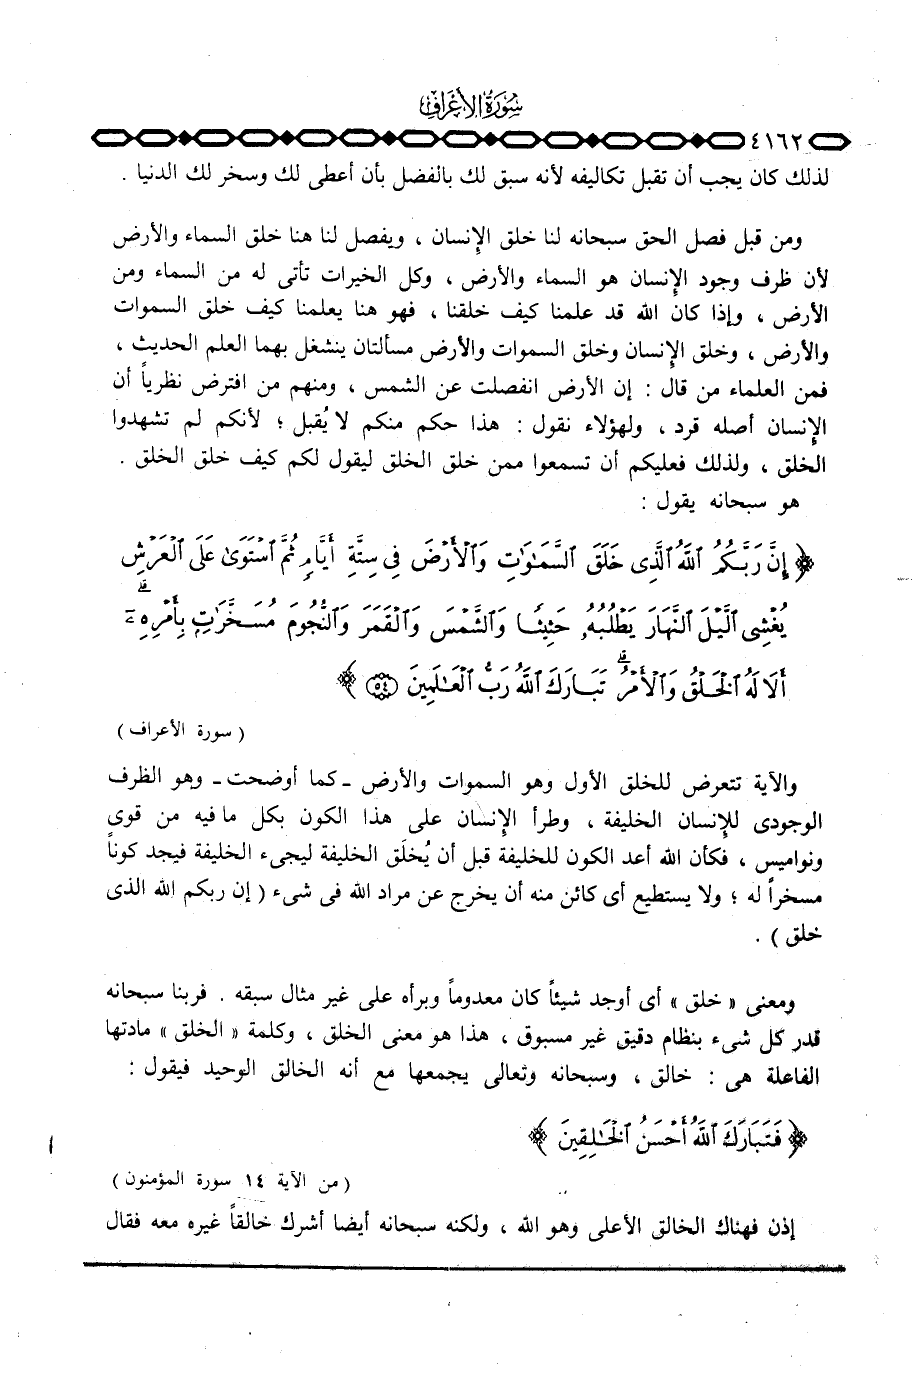 سورة الأعراف
٤١٦٢
لذلك كان يجب أن تقبل تكاليفه لأنه سبق لك بالفضل بأن أعطى لك وسخر لك الدنيا .
ومن قبل فصل الحق سبحانه لنا خلق الإنسان ، ويفصل لنا هنا خلق السماء والأرض
لأن ظرف وجود الإنسان هو السماء والأرض ، وكل الخيرات تأتى له من السماء ومن
الأرض ، وإذا كان الله قد علمنا كيف خلقنا ، فهو هنا يعلمنا كيف خلق السموات
والأرض ، وخلق الإنسان وخلق السموات والأرض مسألتان ينشغل بهما العلم الحديث ،
فمن العلماء من قال : إن الأرض انفصلت عن الشمس ، ومنهم من افترض نظرياً أن
الإنسان أصله قرد ، ولهؤلاء نقول : هذا حكم منكم لا يُقبل ؛ لأنكم لم تشهدوا
الخلق ، ولذلك فعليكم أن تسمعوا ممن خلق الخلق ليقول لكم كيف خلق الخلق .
هو سبحانه يقول :
﴿ إِنَّ رَبَّكُمُ ٱللَّهُ ٱلَّذِى خَلَقَ ٱلسَّمَٰوَٰتِ وَٱلْأَرْضَ فِى سِتَّةِ أَيَّامٍ ثُمَّ ٱسْتَوَىٰ عَلَى ٱلْعَرْشِ
يُغْشِى ٱلَّيْلَ ٱلنَّهَارَ يَطْلُبُهُۥ حَثِيثًا وَٱلشَّمْسَ وَٱلْقَمَرَ وَٱلنُّجُومَ مُسَخَّرَٰتٍۭ بِأَمْرِهِۦٓ ۗ
أَلَا لَهُ ٱلْخَلْقُ وَٱلْأَمْرُ ۗ تَبَارَكَ ٱللَّهُ رَبُّ ٱلْعَٰلَمِينَ ٥٤ ﴾
( سورة الأعراف )
والآية تتعرض للخلق الأول وهو السموات والأرض ـ كما أوضحت ـ وهو الظرف
الوجودى للإنسان الخليفة ، وطرأ الإنسان على هذا الكون بكل ما فيه من قوى
ونواميس ، فكأن الله أعد الكون للخليفة قبل أن يُخلَق الخليفة ليجىء الخليفة فيجد كوناً
مسخراً له ؛ ولا يستطيع أى كائن منه أن يخرج عن مراد الله فى شىء ( إن ربكم الله الذى
خلق ) .
ومعنى « خلق » أى أوجد شيئاً كان معدوماً وبرأه على غير مثال سبقه . فربنا سبحانه
قدر كل شىء بنظام دقيق غير مسبوق ، هذا هو معنى الخلق ، وكلمة « الخلق » مادتها
الفاعلة هى : خالق ، وسبحانه وتعالى يجمعها مع أنه الخالق الوحيد فيقول :
﴿ فَتَبَارَكَ ٱللَّهُ أَحْسَنُ ٱلْخَٰلِقِينَ ﴾
( من الآية ١٤ سورة المؤمنون )
إذن فهناك الخالق الأعلى وهو الله ، ولكنه سبحانه أيضا أشرك خالقاً غيره معه فقال